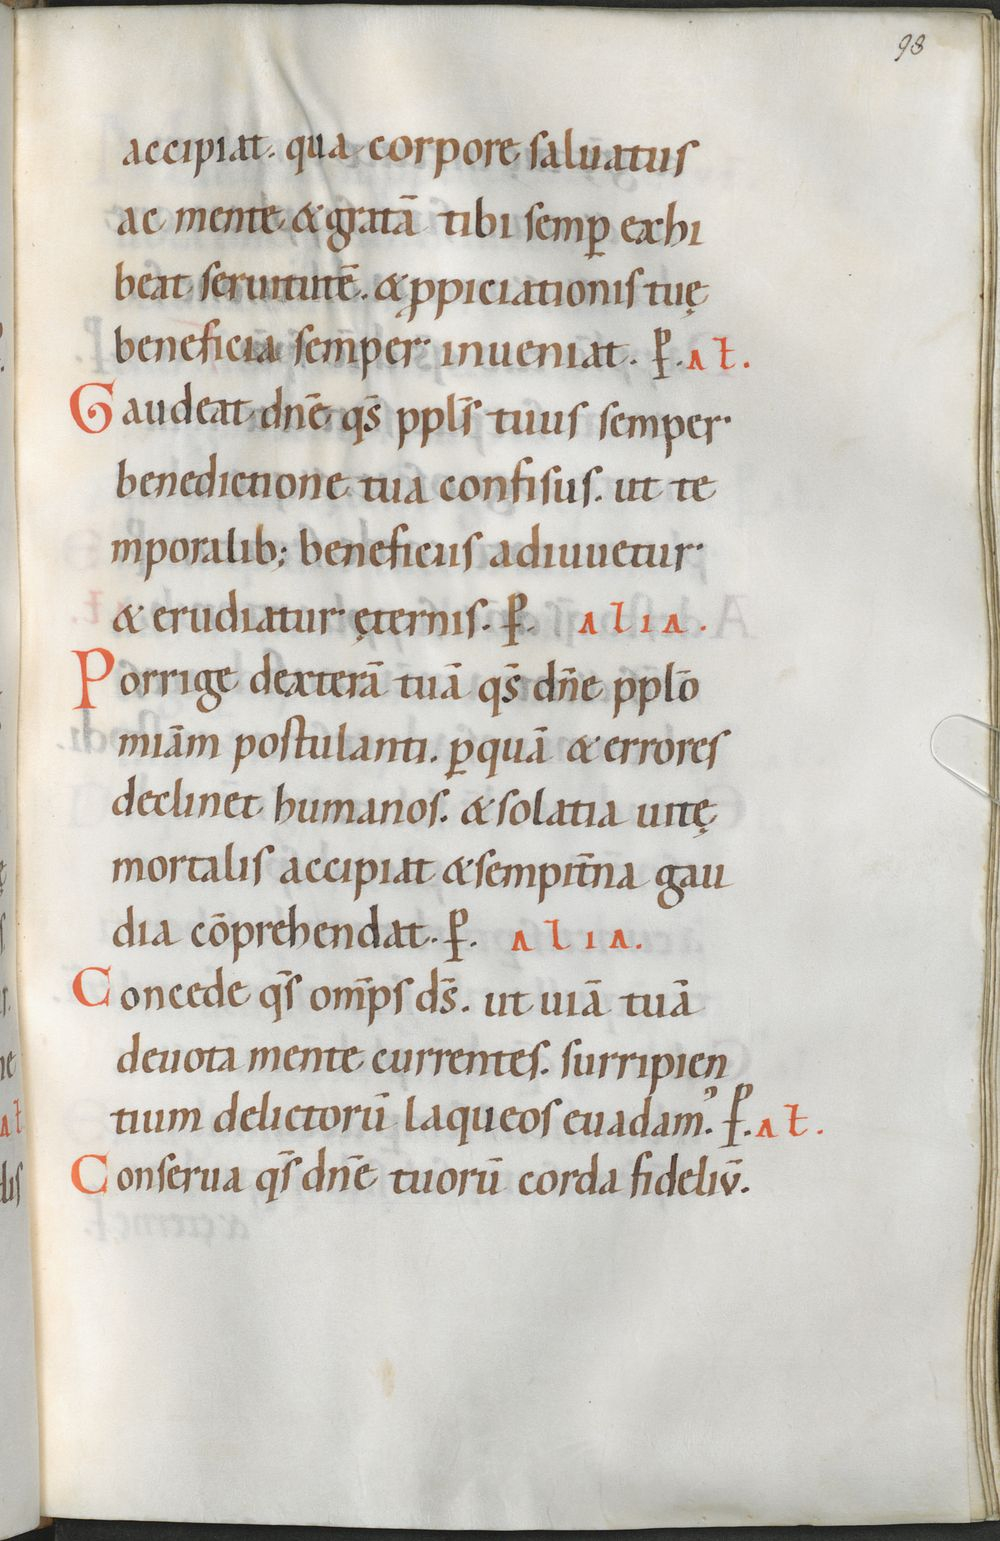 98
accipiat. qua corpore saluatus
ac mente & gratā tibi semꝑ exhi
beat seruitutē. & ꝓpiciationis tuę
beneficia sem̄per inueniat. P̲. al̄.
Gaudeat dn̄e qs̄ ppl̄s tuus semper
benedictione tua confisus. ut te
mporalib; beneficiis adiuuetur
& erudiatur ęternis. P̲. alia.
Porrige dexterā tuā qs̄ dn̄e pplō
miām postulanti. ꝑ quā & errores
declinet humanos. & solatia uitę
mortalis accipiat & sempit̄na gau
dia cōprehendat. P̲. alia.
Concede qs̄ om̄ps ds̄. ut uiā tuā
deuota mente currentes. surripien
tium delictorū laqueos euadamꝰ. P̲. al̄.
Conserua qs̄ dn̄e tuorū corda fideliū.